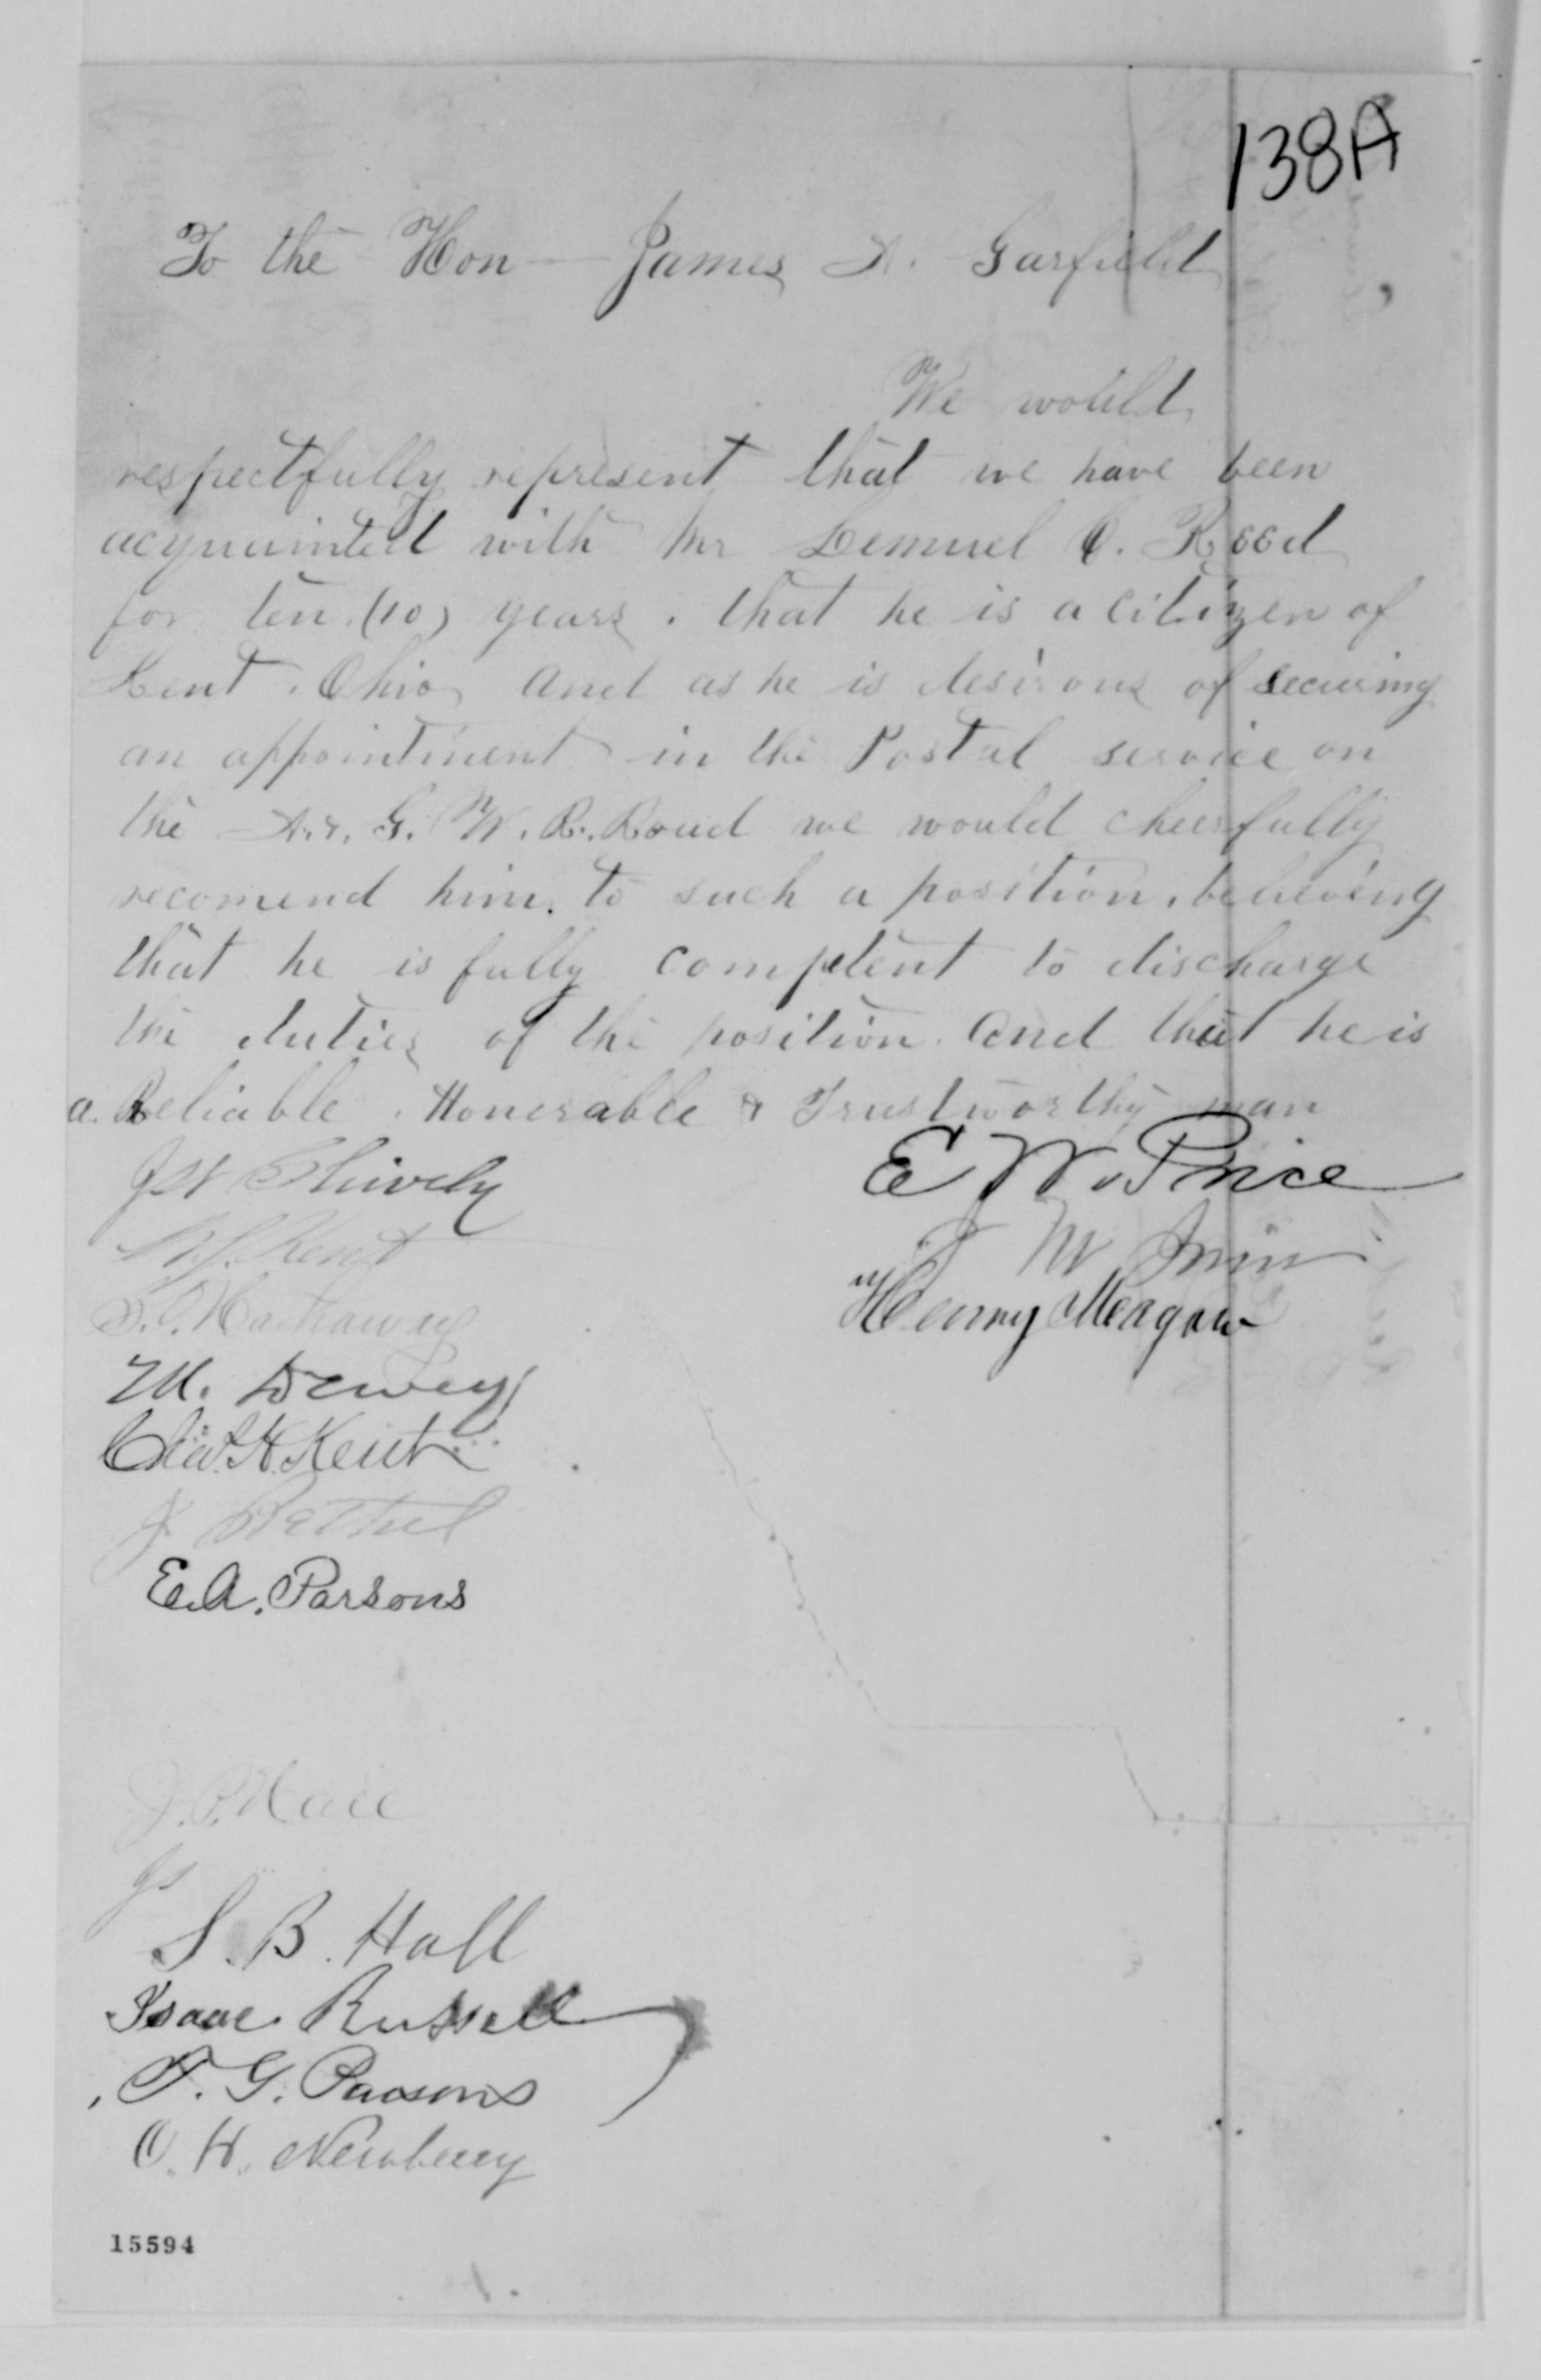 138A
To the Hon - James A. Garfield
We would
respectfully represent that we have been
acquainted with Mr Lemuel C. Reed
for ten (10) years. that he is a citizen of
Kent, Ohio, and as he is desirous of securing
an appointment in the Postal service on
the A. & G. W. R. Road we would cheerfully
recomend him to such a position, believing
that he is fully competent to discharge
the duties of the position and that he is
a Reliable, Honerable & Trustworthy man
Shively
E W. Price
Kent
J M Irwin
Hathaway
Henry Meagow
M. Dewey
Chas. H. Kent
J Bethel
E. A. Parsons
J. P. Hall
S. B. Hall
Isaac Russell
T. G. Parsons
O. H. Newberry
15594